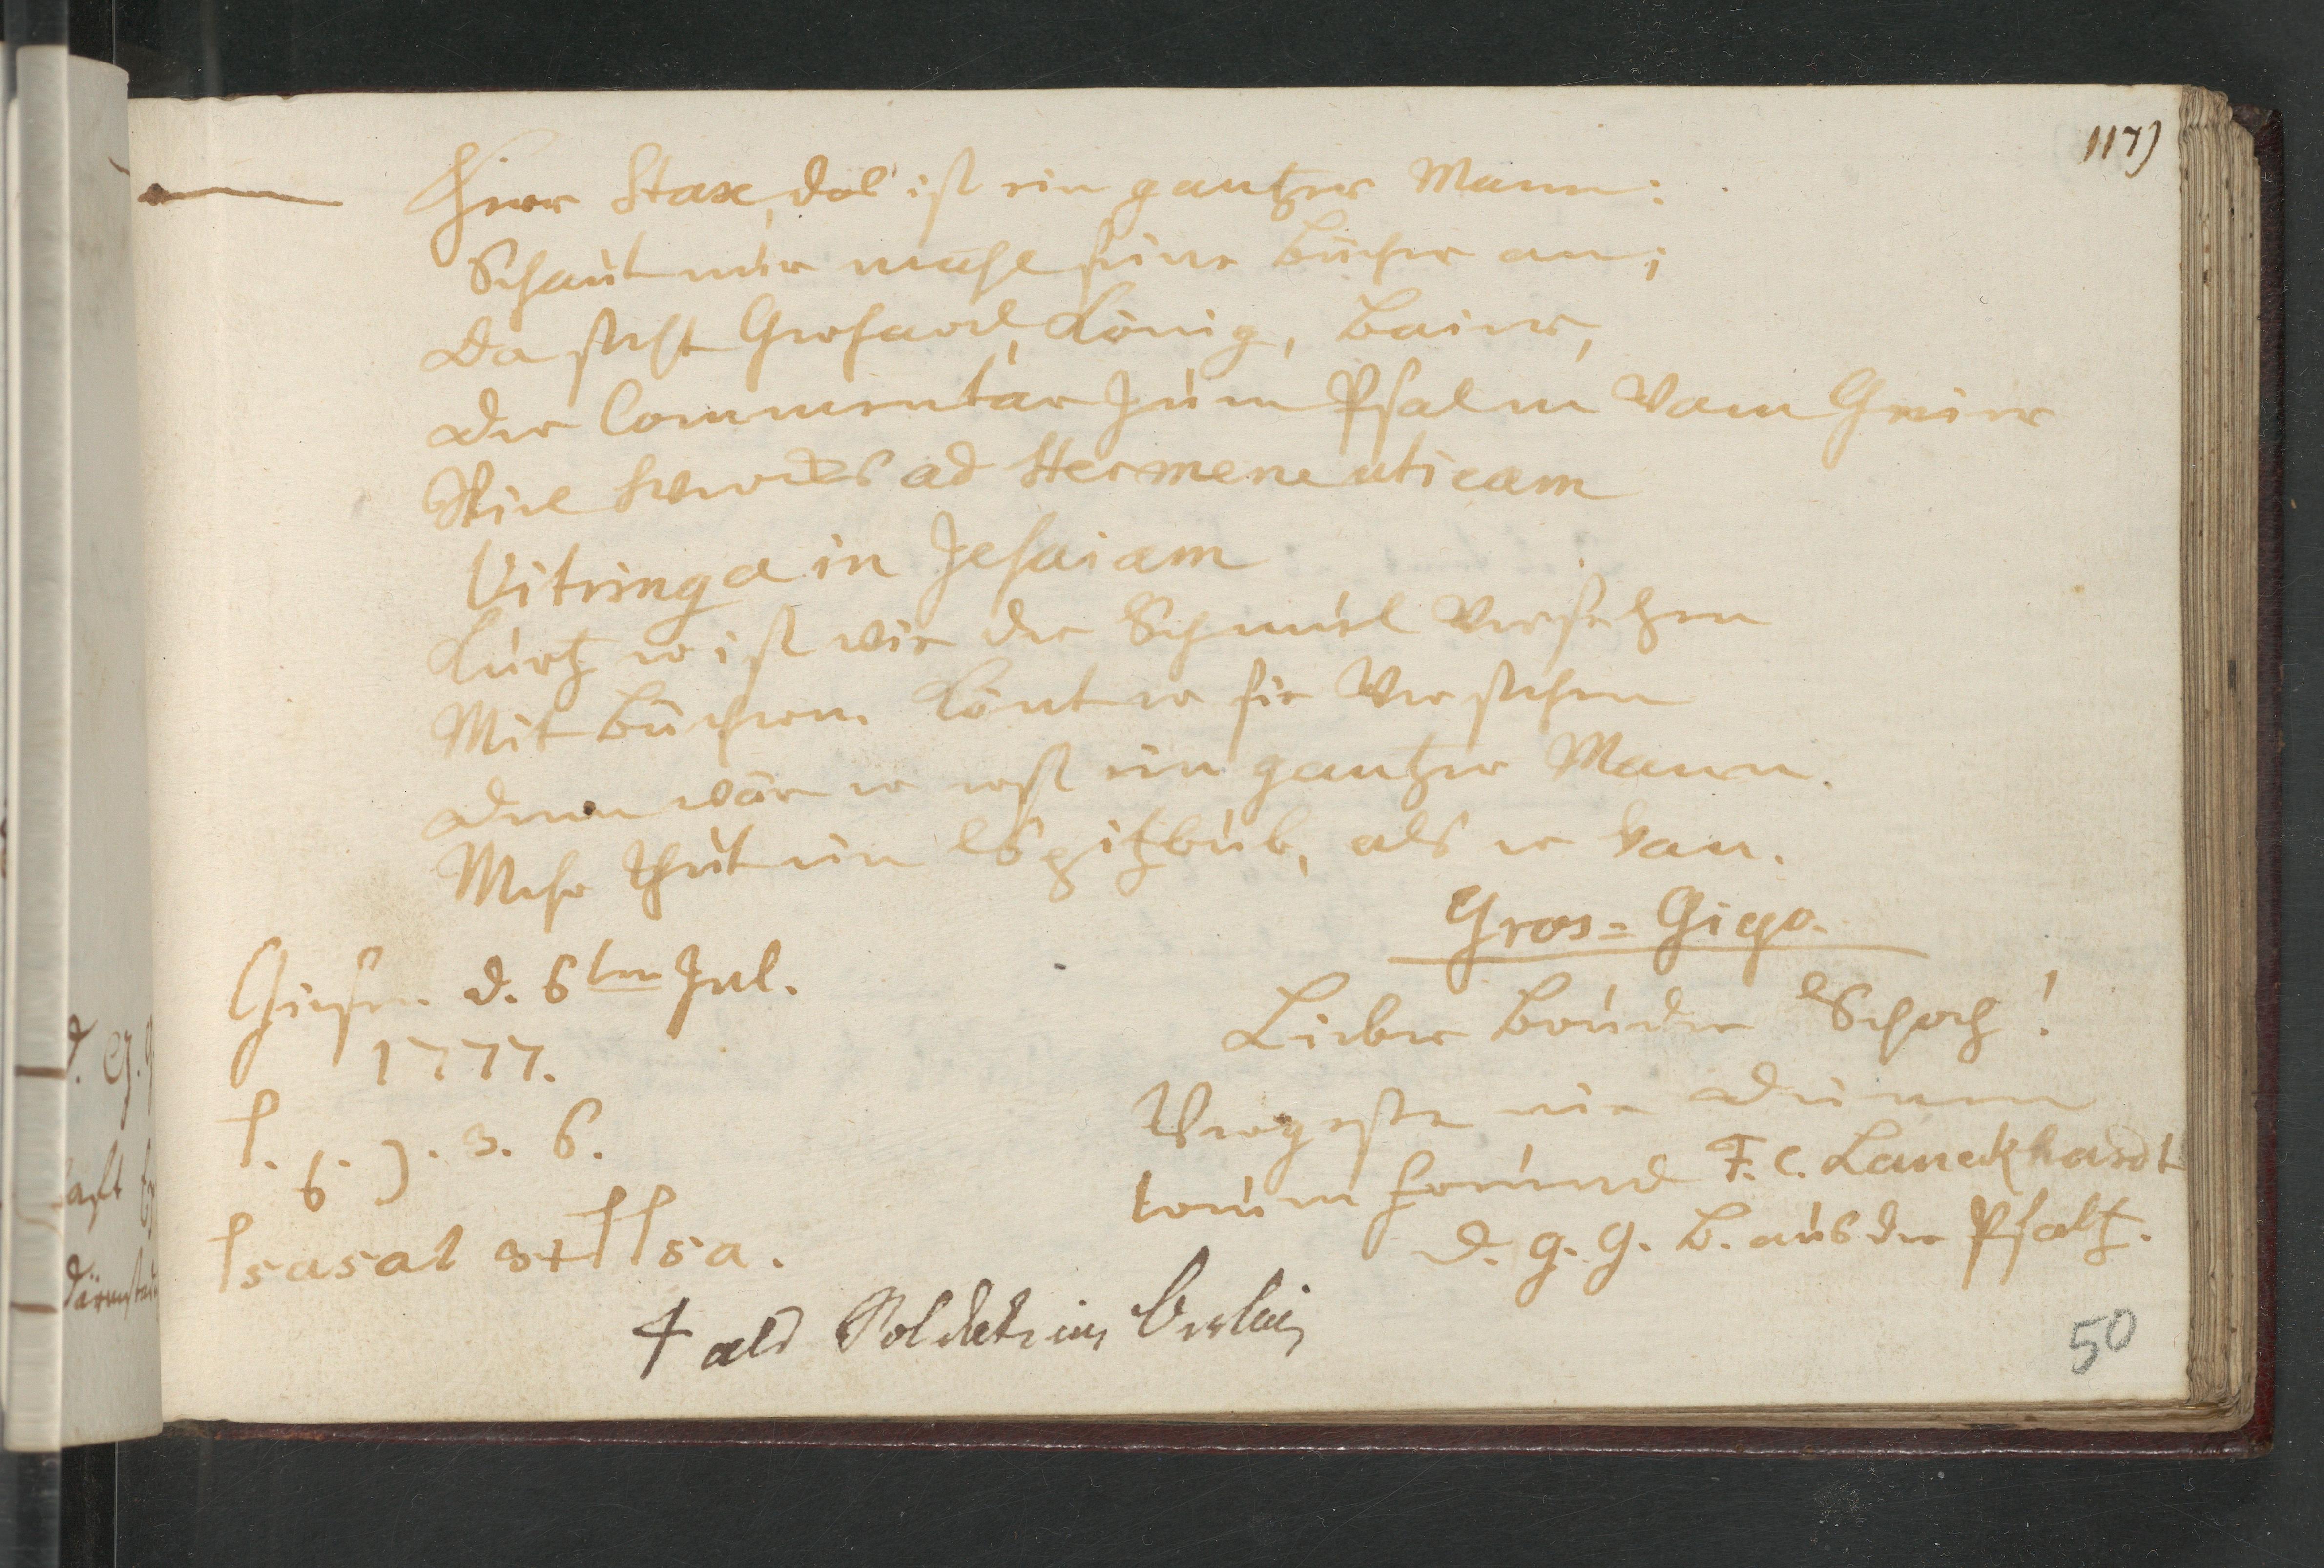 117)
Herr Stax, das ist ein gantzer Mann:
Schaut nur mahl seine Bücher an;
Da steht Gerhard, König, Baier,
Der Commentar zum Psalm Vom Geier
ad Hermeneuticam
Vitringa in Jesaiam
Kurtz er ist wie der Schmuel Versehen
Mit Büchern. Könt er sie Verstehen
Denn wär er erst ein gantzer Mann.
Mehr thut ein Spitzbub, als er kan.
Gros=Gigo.
Giesen. d. 6ten Jul.
1777.
Lieber Bruder Schoch!
Vergeße nie Deinen
treuen Freund F. C. Lauckhardt
d. g. g. B. aus der Pfaltz.
† als Soldat in Berlin
50